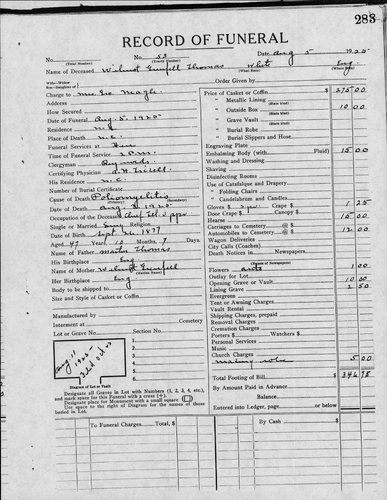 283
RECORD OF FUNERAL
No. No. 52 Date Aug 5 1925
(Total Number) (Yearly Number)
Name of Deceased Wilmot Grenfell Thomas White Eng
(What Race) (Where Born)
Wife—Widow
Son—Daughter of Order Given by
Charge to Mrs. Geo
Address
How Secured
Date of Funeral Aug. 5. 1925
Residence
Place of Death
Funeral Services at
Time of Funeral Service 2 P.M.
Clergyman Reynolds
Certifying Physician
His Residence
Number of Burial Certificate
Cause of Death Poliomyelitis
Date of Death Aug 1925
Occupation of the Deceased
Single or Married Religion
Date of Birth Sept 1877
Aged 47 Years 10 Months Days
Name of Father Thomas
His Birthplace Eng
Name of Mother Grenfell
(Maiden Name)
Her Birthplace Eng
Body to be shipped to
Size and Style of Casket or Coffin
Manufactured by
Interment at Cemetery
Lot or Grave No. Section No.
Aug 11
1925
1
2
3
4
5
6
7
8
Diagram of Lot or Vault
Designate all Graves in Lot with Numbers (1, 2, 3, 4, etc.),
and mark space for this Funeral with a cross (+).
Designate place for Monument with a small square
Use space to the right of Diagram for the names of those
buried in Lot.
Price of Casket or Coffin $ 275 00
" Metallic Lining
(State Kind)
" Outside Box 10 00
(State Kind)
" Grave Vault
(State Kind)
" Burial Robe
(State Kind)
" Burial Slippers and Hose
Engraving Plate
Embalming Body (with Fluid) 15 00
Washing and Dressing
Shaving
Disinfecting Rooms
Use of Catafalque and Drapery
" Folding Chairs
" Candelabrum and Candles
Gloves $ Crape $ 1 25
Door Crape $ Canopy $
Hearse 15 00
Carriages to Cemetery @ $ 12 00
Automobiles to Cemetery @ $
Wagon Deliveries
City Calls (Coaches)
Death Notices in Newspapers
(Names of Newspapers)
Flowers 1 00
Outlay for Lot
Opening Grave or Vault 10 00
Lining Grave 2 50
Evergreen
Tent or Awning Charges
Vault Rental
Shipping Charges, prepaid
Removal Charges
Cremation Charges
Porters $ Watchers $
Personal Services
Music
Church Charges
5 00
Total Footing of Bill $ 346 75
By Amount Paid in Advance
Balance
Entered into Ledger, page or below
To Funeral Charges Total, $ By Cash $